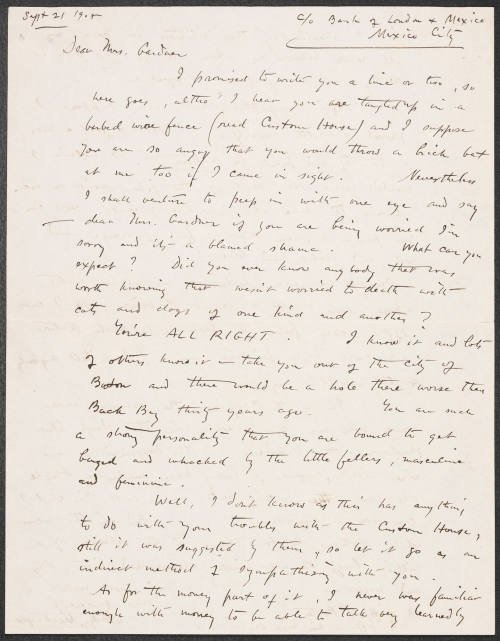 Sept 21 1908
c/o Bank of London & Mexico
Mexico City
Dear Mrs. Gardner
I promised to write you a line or two, so
here goes, altho' I hear you are tangled up in a
barbed wire fence (read Custom House) and I suppose
you are so angry that you would throw a brick bat
at me too if I came in sight. Nevertheless
I shall venture to peep in with one eye and say
— dear Mrs. Gardner if you are being worried I'm
sorry and it's a blamed shame. What can you
expect? Did you ever know anybody that was
worth knowing that wasn't worried to death with
cats and dogs of one kind and another?
You're ALL RIGHT. I know it and lots
of others know it — take you out of the city of
Boston and there would be a hole there worse than
Back Bay thirty years ago. You are such
a strong personality that you are bound to get
banged and whacked by the little fellers, masculine
and feminine.
Well, I don't know as this has anything
to do with your troubles with the Custom House,
still it was suggested by them, so let it go as an
indirect method of sympathising with you.
As for the money part of it, I never was familiar
enough with money to be able to talk very learnedly